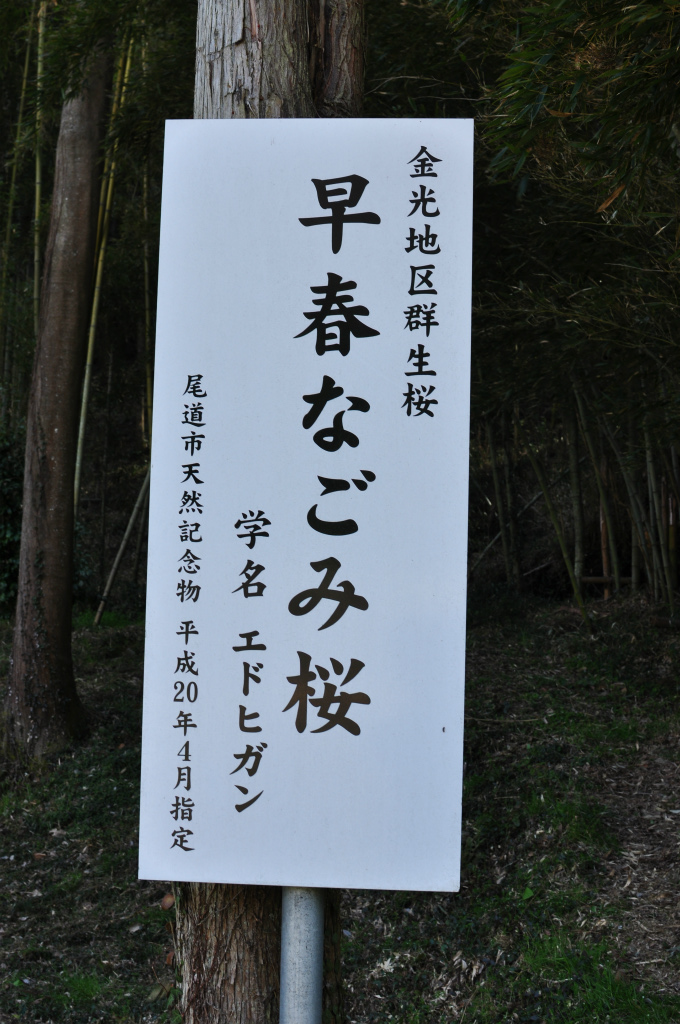 金光地区群生桜
早春なごみ桜
学名 エドヒガン
尾道市天然記念物 平成20年4月指定